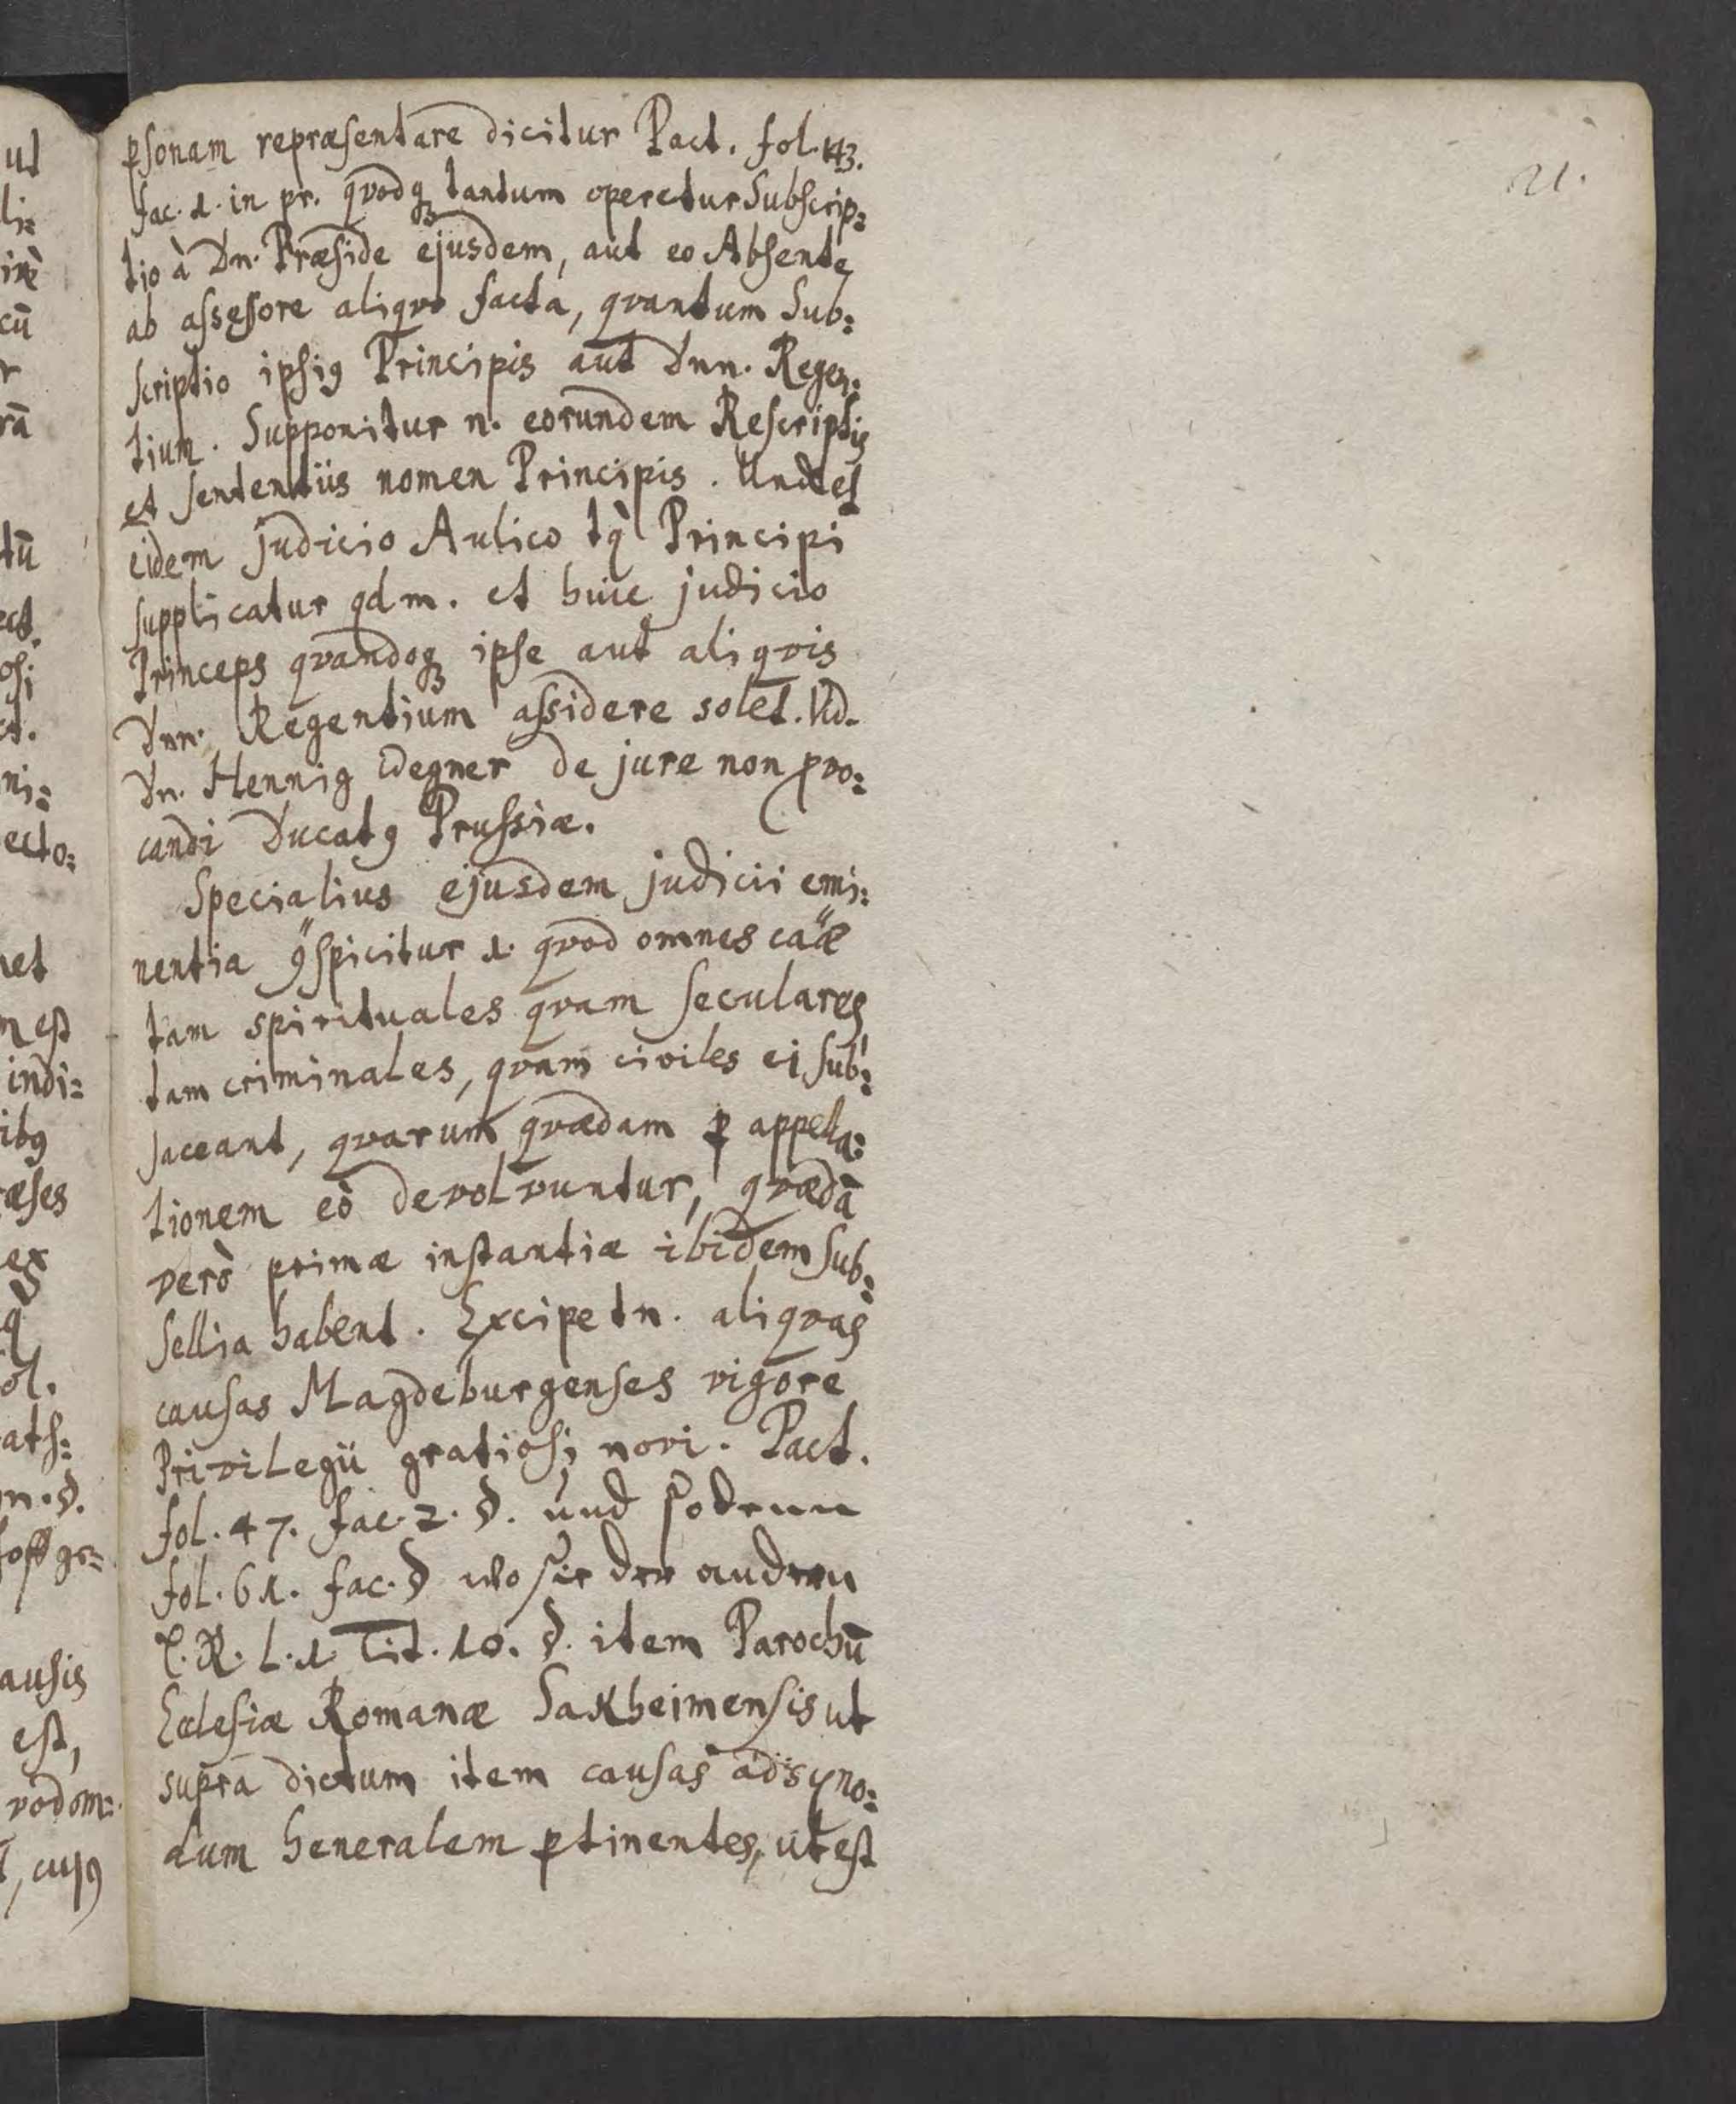 21.
psonam repræsentare dicitur Pact. fol. 143.
fac. 1. in pr. qvodq tantum operetur Subscrip=
tio à Dn. Præside ejusdem, aut eo Absente
ab assessore aliqvo facta, qvantum Sub=
scriptio ipsiq Principis aut Dnn. Regen=
tium. Supponitur n. eorundem Rescriptis
et sententiis nomen Principis. Und et
eidem judicio Aulico tq Principi
supplicatur qdm. et huic judicio
Princeps qvandoq ipse aut aliqvis
Dnn. Regentium assidere solet. Vid.
Dn. Hennig Wegner de jure non pvo=
candi Ducatq Prussiæ.
Specialius ejusdem judicii emi=
nentia 9spicitur 1. qvod omnes caæ
tam spirituales qvam seculares
tam criminales, qvam civiles ei sub=
jaceant, qvarum qvædam p appella=
tionem eò devolvuntur, qvædā
verò primæ instantiæ ibidem Sub=
sellia habent. Excipe tn. aliqvas
causas Magdeburgenses vigore
Privilegii gratiosi novi. Pact.
fol. 47. fac. 2. §. und sodenn
fol. 61. fac. § wo sie der andern
L. R. L. 1. Tit. 10. §. item Parochū
Ecclesiæ Romanæ Sakheimensis ut
supra dictum item causas ad syno=
dum Generalem ptinentes, ut est
ut
li=
cū
rā
tū
ni=
ecto=
et
m est
indi=
ibq
æses
ex
ol.
n. §.
ausis
est,
vodom=
, cujq